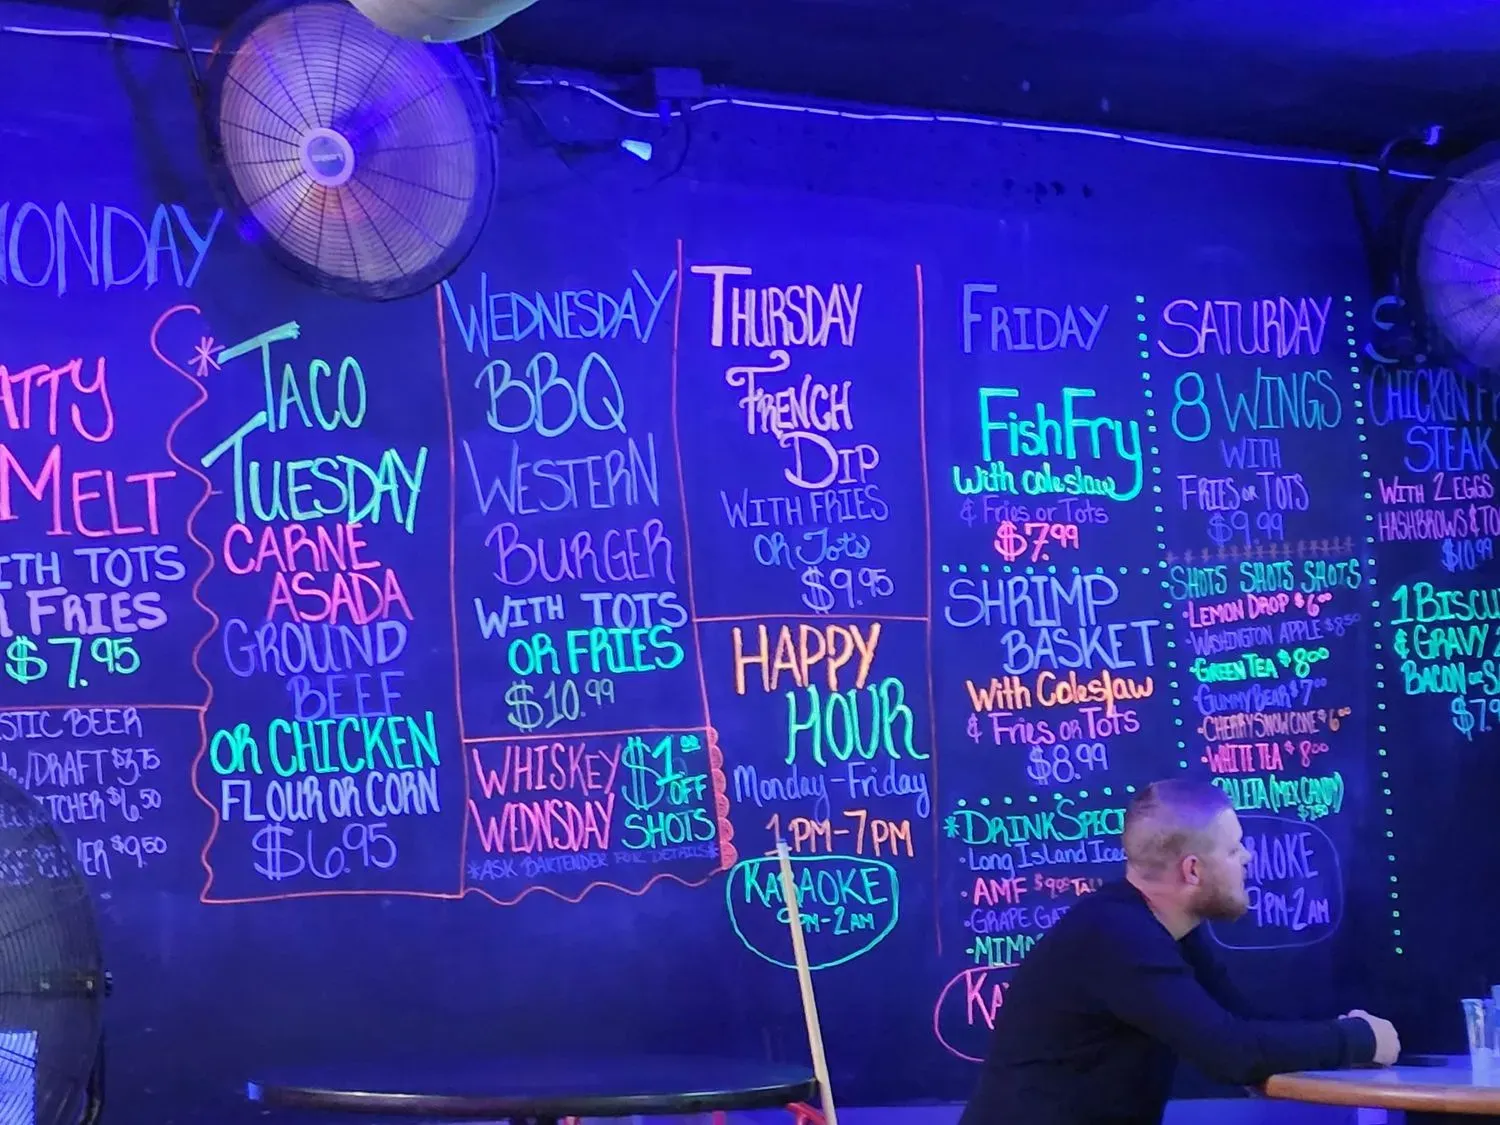 MONDAY
PATTY
MELT
WITH TOTS
OR FRIES
$7.95
BEER
/DRAFT $3.75
PITCHER $6.50
$9.50
*TACO
TUESDAY
CARNE
ASADA
GROUND
BEEF
OR CHICKEN
FLOUR OR CORN
$6.95
WEDNESDAY
BBQ
WESTERN
BURGER
WITH TOTS
OR FRIES
$10.99
WHISKEY
WEDNSDAY
$1.00
OFF
SHOTS
*ASK BARTENDER FOR DETAILS*
THURSDAY
FRENCH
DIP
WITH FRIES
OR Tots
$9.95
HAPPY
HOUR
Monday-Friday
1PM-7PM
KARAOKE
9PM-2AM
FRIDAY
FishFry
With coleslaw
& Fries or Tots
$7.99
SHRIMP
BASKET
With Coleslaw
& Fries OR TOTS
$8.99
*DRINK SPECI
•LONG ISLAND Ice
•AMF
•GRAPE
•MIM
KA
SATURDAY
8 WINGS
WITH
FRIES OR TOTS
$9.99
SHOTS SHOTS SHOTS
•LEMON DROP $6.00
•WASHINGTON APPLE $8.50
•GREEN TEA $8.00
•GUMMY BEAR $7.00
•CHERRY SNOWCONE $6.00
•WHITE TEA $8.00
(MEX CANDY)
RAOKE
9PM-2AM
S
CHICKEN
STEAK
WITH 2 EGGS
HASHBROWS & TO
$10.99
1 BISCU
& GRAVY 2
BACON or S
$7.9